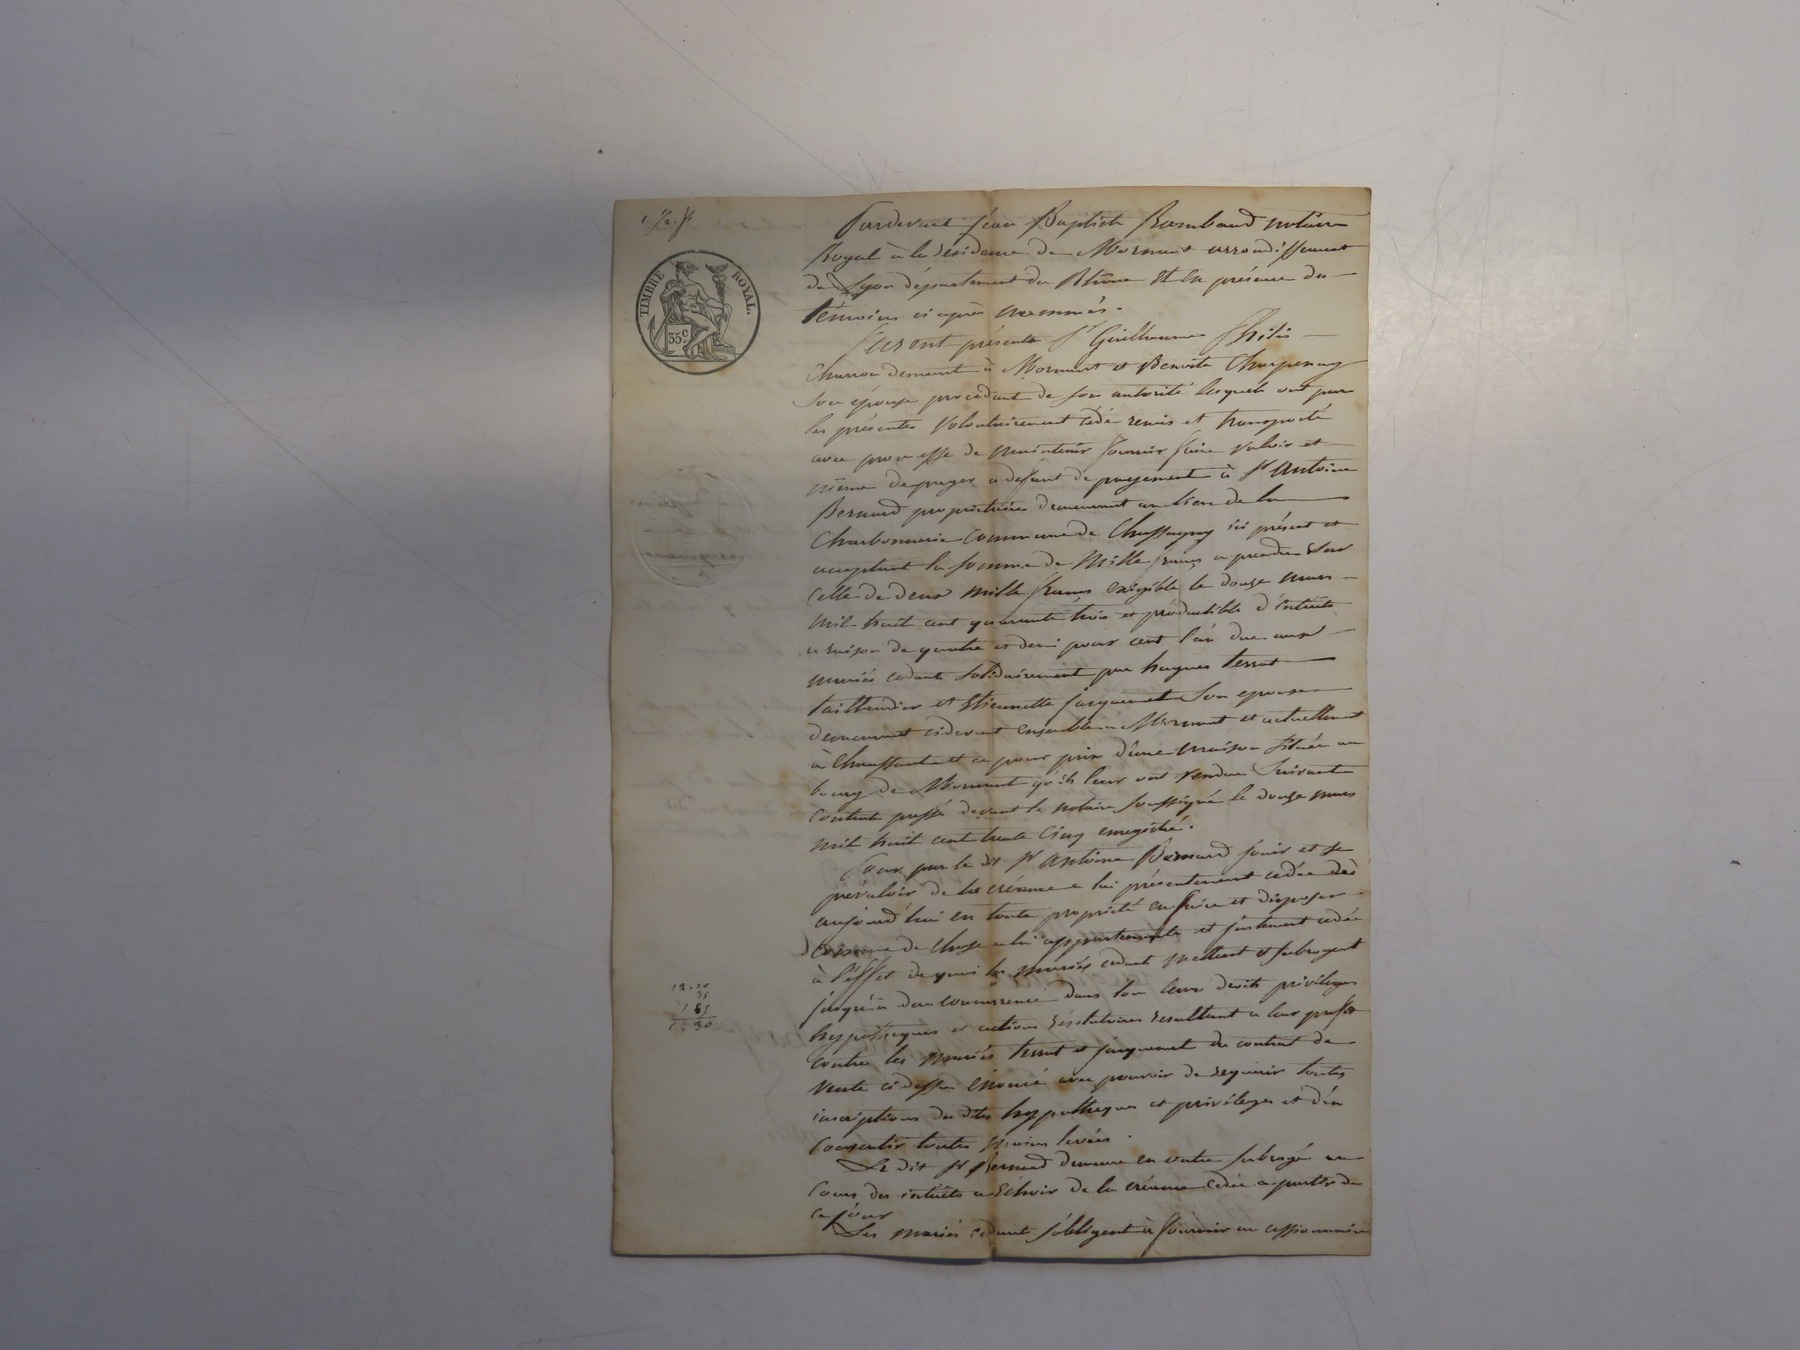 TIMBRE ROYAL.
35c
Pardevant Jean Baptiste Rambaud notaire
Royal à la résidence de Mornant arrondissement
de Lyon département du Rhône et en présence des
témoins ci après nommés.
furent présents Sr Guillaume
Charron demeurant à Mornant et Benoite Charpenay
son épouse procédant de son autorité lesquels ont par
les présentes volontairement cédé remis et transporté
avec promesse de maintenir fournir faire valoir et
même de payer a défaut de payement à Sr Antoine
Bernard propriétaire demeurant au lieu de la
Charbonnerie commune de Chassagny ici présent et
acceptant la somme de Mille francs a prendre sur
celle de deux mille francs exigible le douze mars
mil huit cent quarante trois et productible d'intérêts
a raison de quatre et demi pour cent l'an due aux
mariés cédants solidairement par hugues terrat
taillandier et Etiennette jacquemet son epouse
demeurant cidevant ensemble a Mornant et actuellement
à et ce pour prix d'une maison située au
bourg de Mornant qu'ils leur ont vendue suivant
contrat passé devant le notaire soussigné le douze mars
mil huit cent trente cinq enregistré.
Pour par le dit Sr Antoine Bernard jouir et se
prévaloir de la créance a lui présentement cédée dès
aujourd'hui en toute propriété en faire et disposer
comme de chose a lui appartenante et justement cédée
à l'effet de quoi les mariés cédants mettent et subrogent
jusqu'à due concurrence dans tous leurs droits privilèges
hypothèques et actions résolutoires resultant a leur profit
contre les mariés terrat et jacquemet du contrat de
vente cidessus énoncé avec pouvoir de requerir toutes
inscriptions des dites hyppothèques et privilèges et d'en
consentir toutes mains levées.
Le dit Sr Bernard demeure en outre subrogé au
cours des intérêts a échoir de la créance cédée a partir de
ce jour
Les mariés cédants s'obligent à fournir au cessionnaire